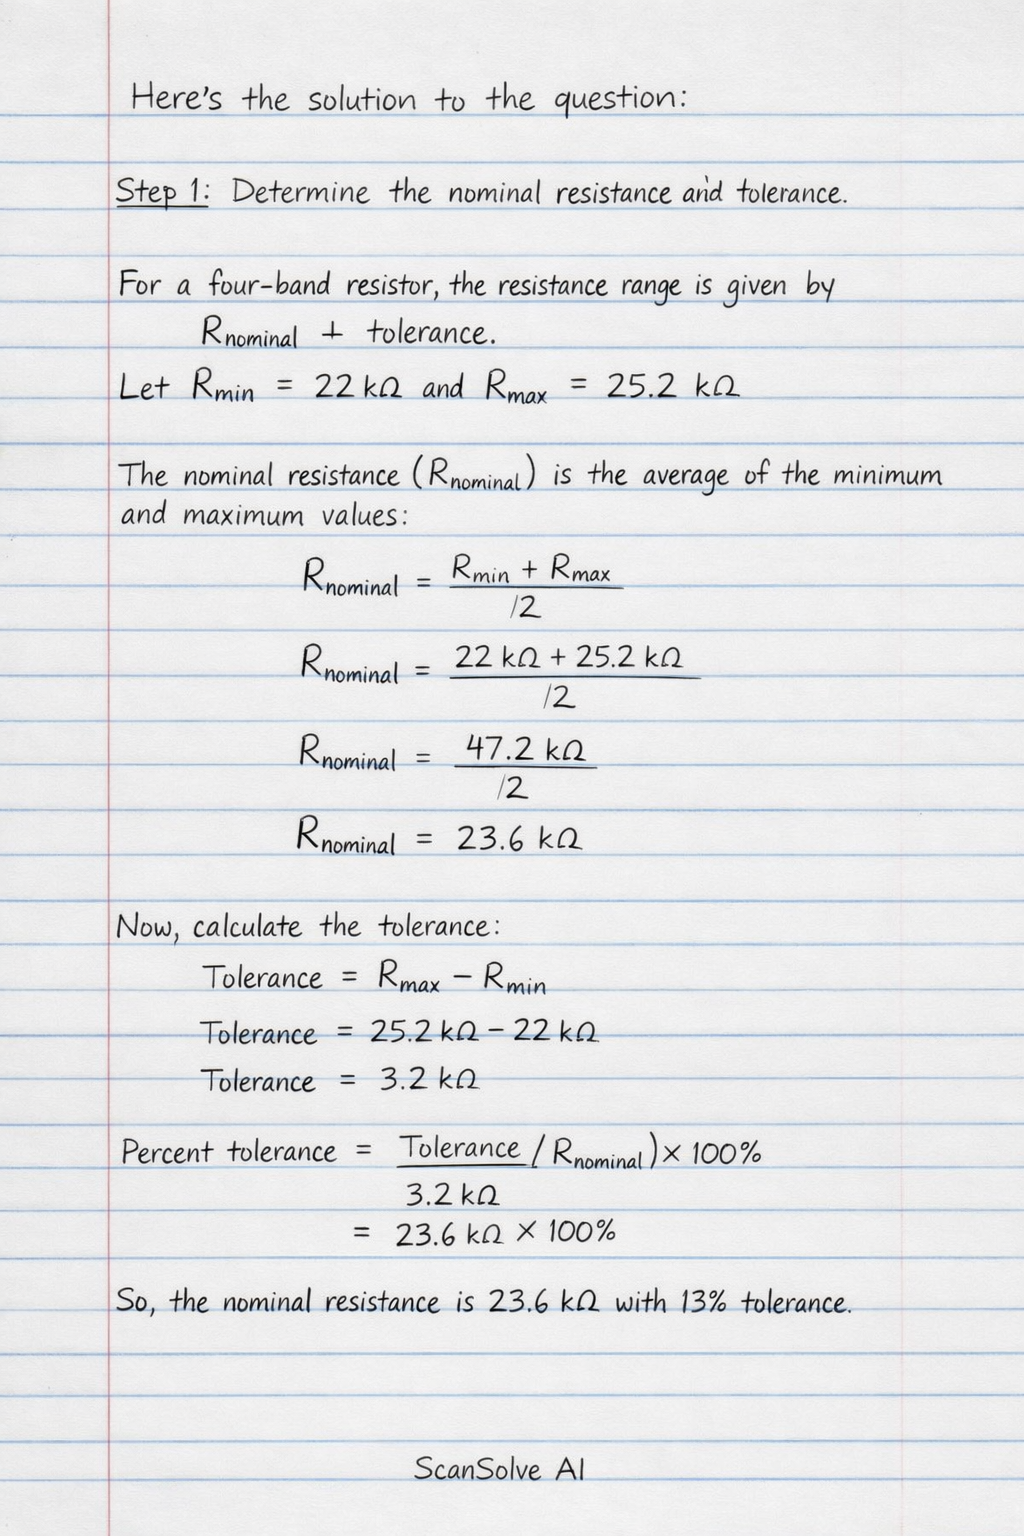 Here's the solution to the question:
Step 1: Determine the nominal resistance and tolerance.
For a four-band resistor, the resistance range is given by
Rnominal + tolerance.
Let Rmin = 22 kΩ and Rmax = 25.2 kΩ
The nominal resistance (Rnominal) is the average of the minimum
and maximum values:
Rnominal = Rmin + Rmax
/2
Rnominal = 22 kΩ + 25.2 kΩ
/2
Rnominal = 47.2 kΩ
/2
Rnominal = 23.6 kΩ
Now, calculate the tolerance:
Tolerance = Rmax − Rmin
Tolerance = 25.2 kΩ − 22 kΩ
Tolerance = 3.2 kΩ
Percent tolerance = Tolerance / Rnominal) × 100%
3.2 kΩ
= 23.6 kΩ × 100%
So, the nominal resistance is 23.6 kΩ with 13% tolerance.
ScanSolve AI